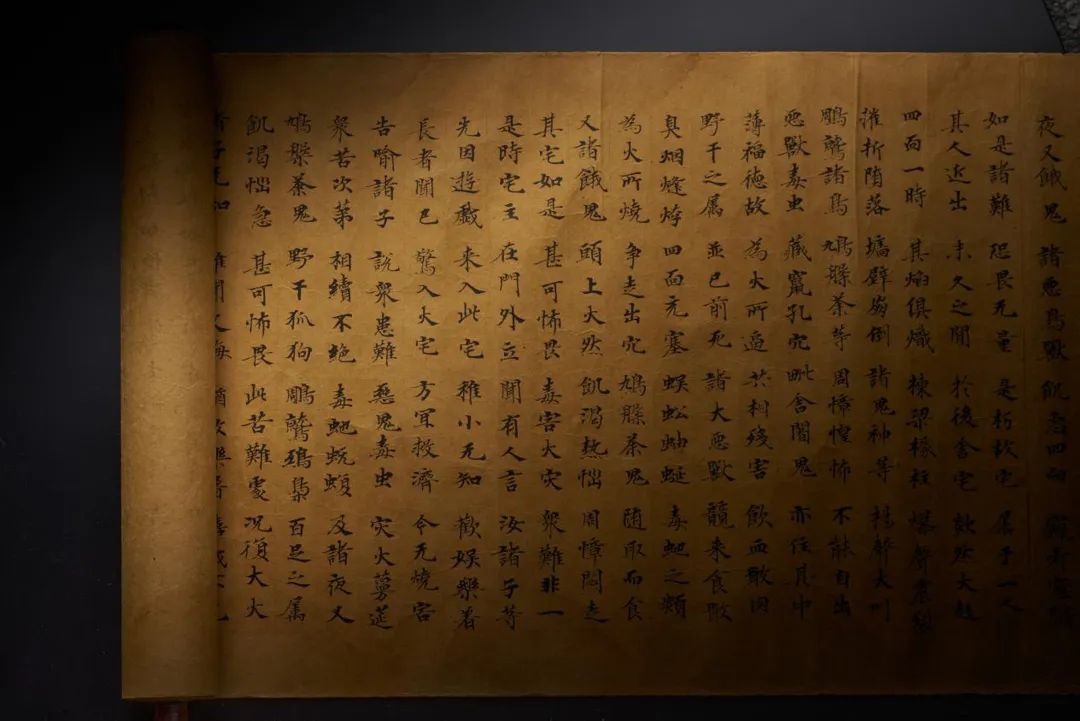 夜叉餓鬼 諸惡鳥獸 飢急四向
如是諸難 恐畏无量 是朽故宅 屬于一人
其人近出 未久之間 於後舍宅 欻然火起
四面一時 其焰俱熾 棟梁椽柱 爆聲震裂
摧折堕落 墻壁崩倒 諸鬼神等 揚聲大叫
鵰鷲諸鳥 鳩槃荼等 周慞惶怖 不能自出
惡獸毒虫 藏竄孔穴 毗舍闍鬼 亦住其中
薄福德故 為火所逼 共相殘害 飲血噉肉
野干之属 並已前死 諸大惡獸 競来食噉
臭烟熢㶿 四面充塞 蜈蚣蚰蜒 毒虵之類
為火所燒 争走出穴 鳩槃荼鬼 随取而食
又諸餓鬼 頭上火然 飢渴熱惱 周慞悶走
其宅如是 甚可怖畏 毒害火灾 衆難非一
是時宅主 在門外立 聞有人言 汝諸子等
先因遊戲 来入此宅 稚小无知 歡娛樂著
長者聞已 驚入火宅 方宜救濟 令无燒害
告喻諸子 說衆患難 惡鬼毒虫 灾火蔓莚
衆苦次第 相續不絕 毒虵蚖蝮 及諸夜叉
鳩槃荼鬼 野干狐狗 鵰鷲鵄梟 百足之属
飢渴惱急 甚可怖畏 此苦難處 况復大火